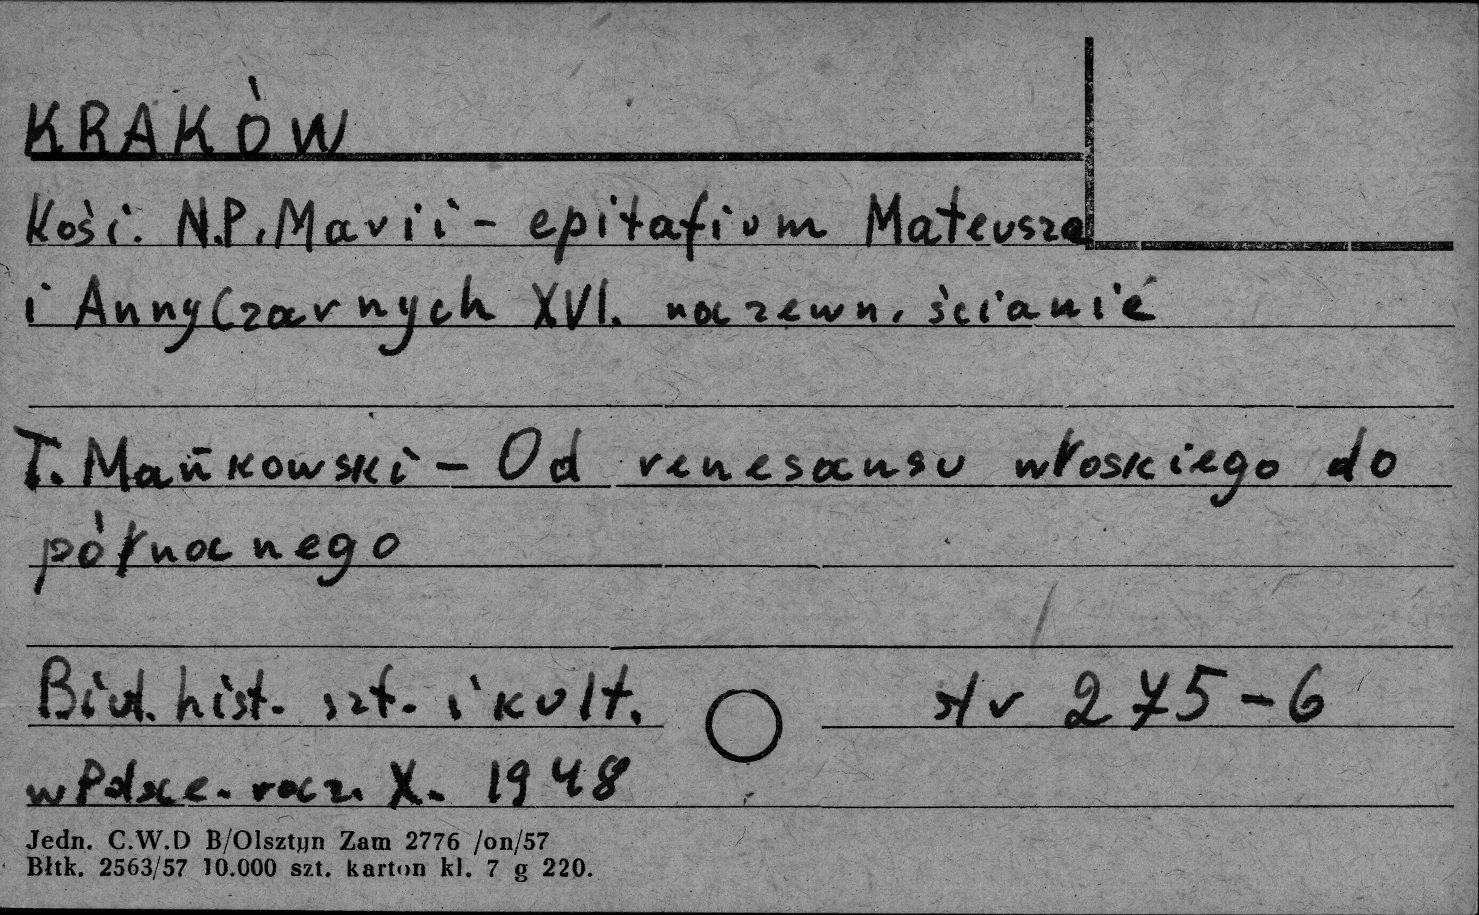 KRAKÓW
Kości. N.P. Marii - epitafium Mateusza
i Anny Czarnych XVI. na zewn. ścianie
T. Mańkowski - Od renesansu włoskiego do
północnego
Biul. hist. szt. i kult. str 275-6
w Polsce. rocz. X. 1948
Jedn. C.W.D B/Olsztyn Zam 2776 /on/57
Błtk. 2563/57 10.000 szt. karton kl. 7 g 220.